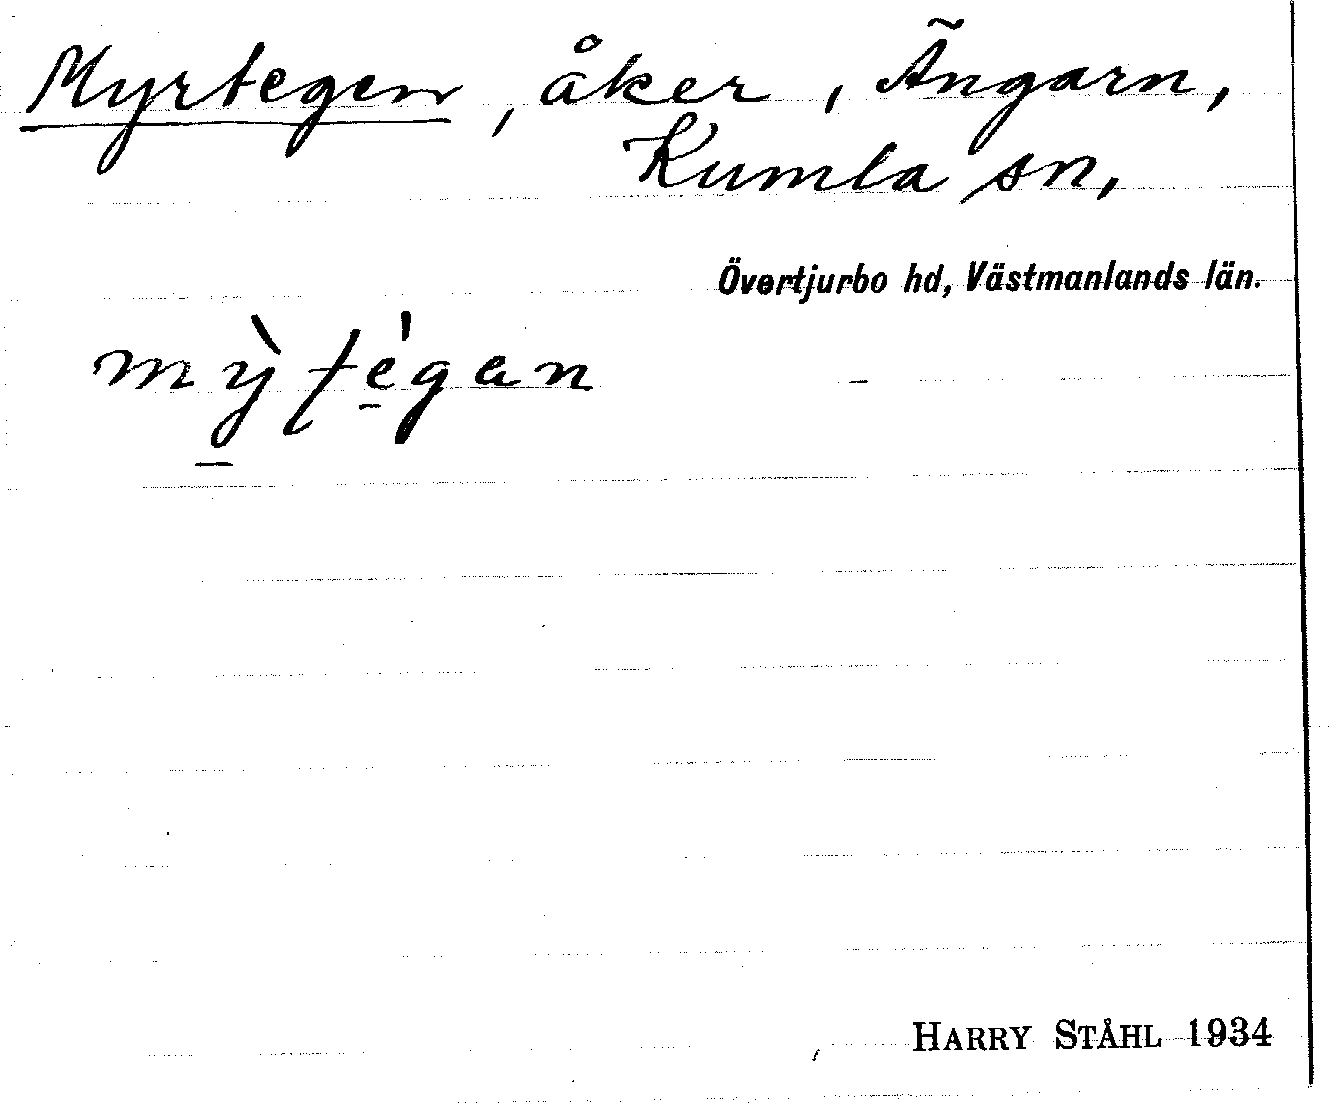 Myrtegen, åker, Ängarn,
Kumla sn,
Övertjurbo hd, Västmanlands län.
mỳ̠ té̠gan
HARRY STÅHL 1934